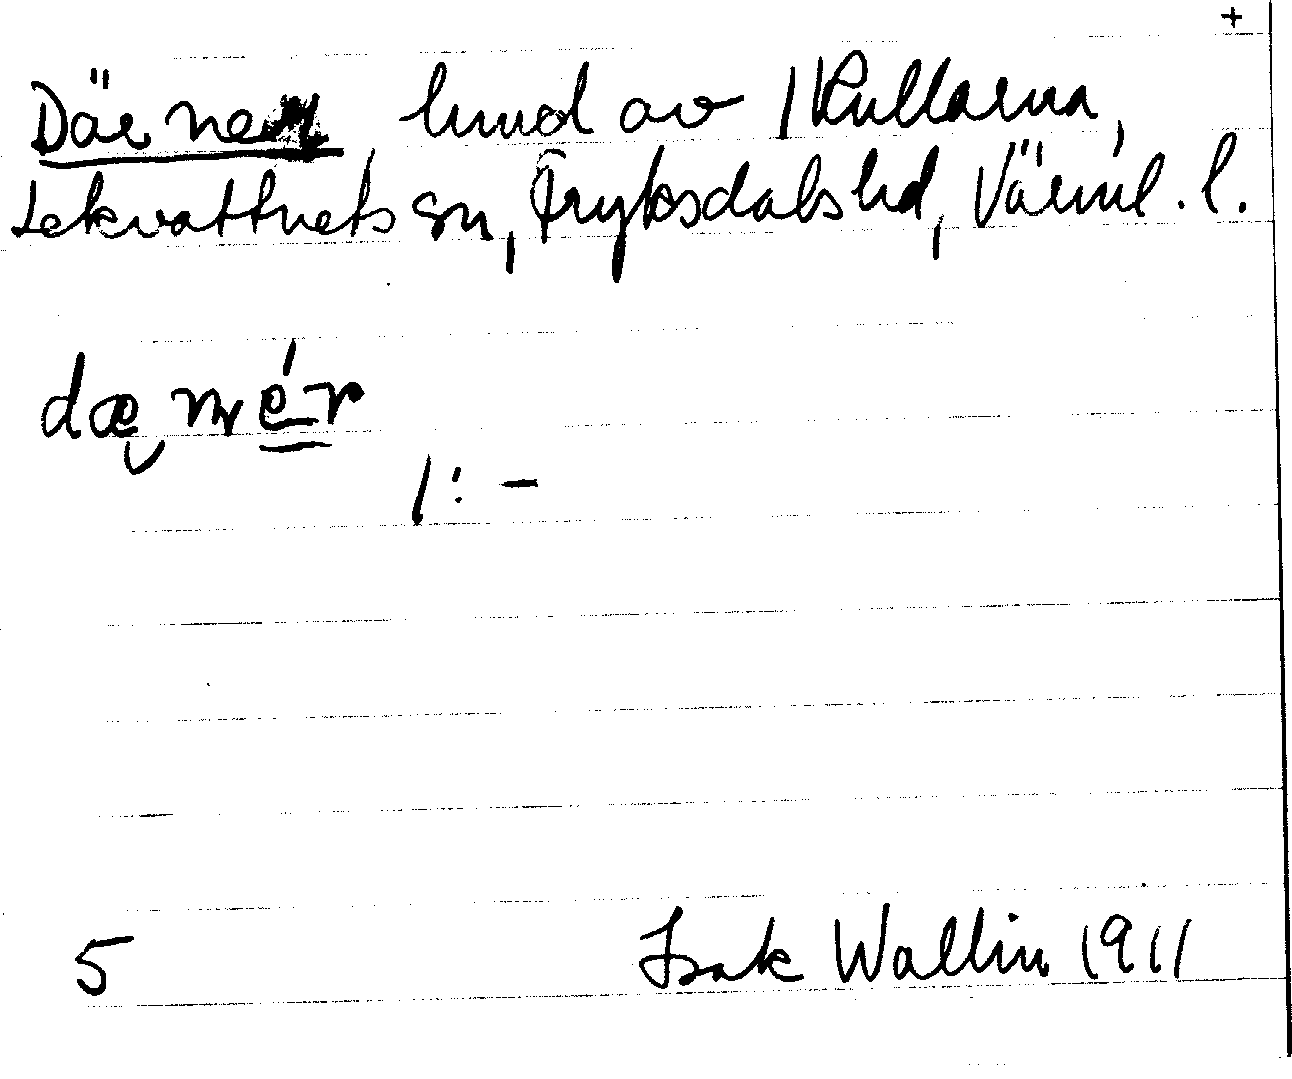 +
Där ner hmd av 1 Kullarna,
Lekvattnets sn, Fryksdals hd, Värml. l.
dæ nér
1: -
5 Isak Wallin 1911